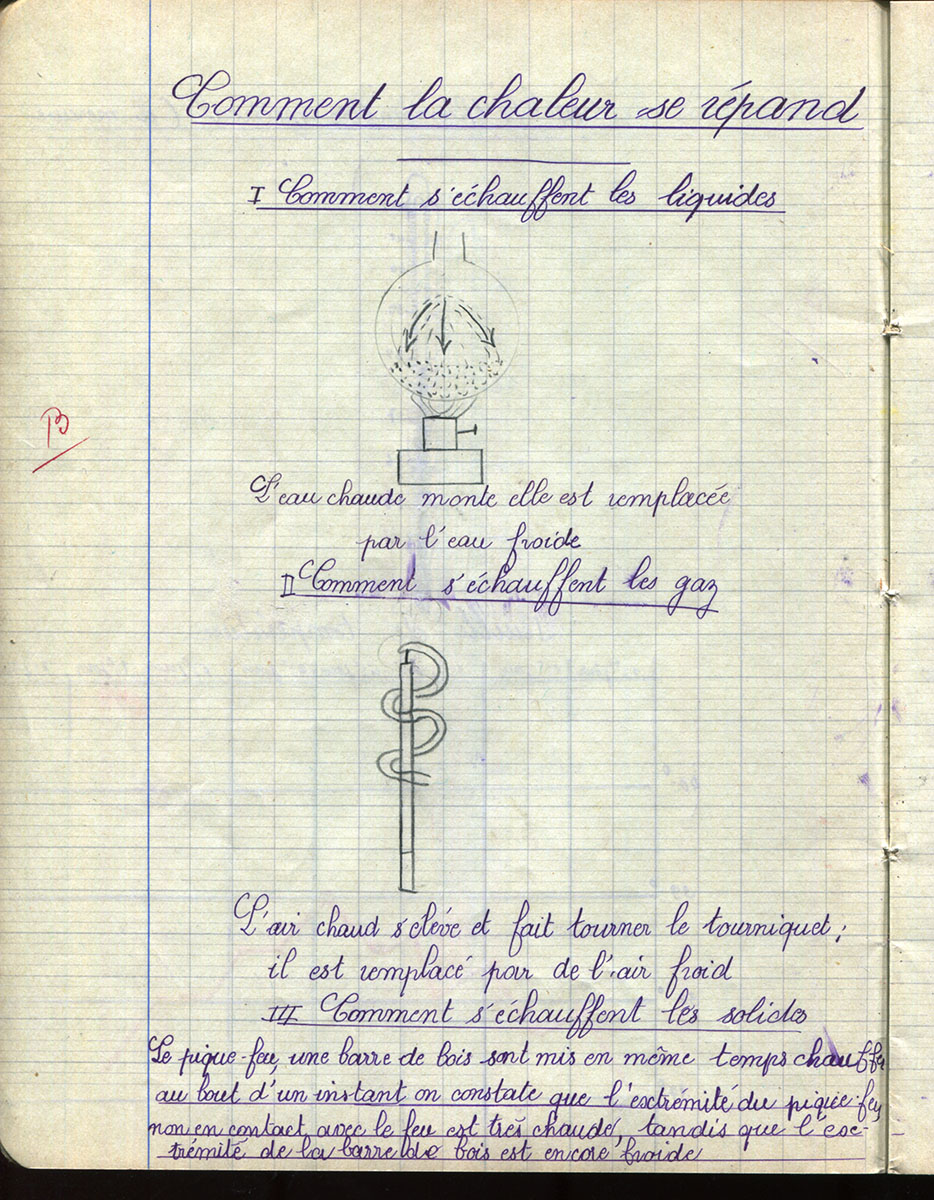 Comment la chaleur se répand
I Comment s'échauffent les liquides
B
L'eau chaude monte elle est remplacée
par l'eau froide
II Comment s'échauffent les gaz
L'air chaud s'elève et fait tourner le tourniquet ;
il est remplacé par de l'air froid
III Comment s'échauffent les solides
Le pique-feu, une barre de bois sont mis en même temps chauffer
au bout d'un instant on constate que l'extrémité du pique-feu,
non en contact avec le feu est très chaude, tandis que l'ex-
trémité de la barre de bois est encore froide